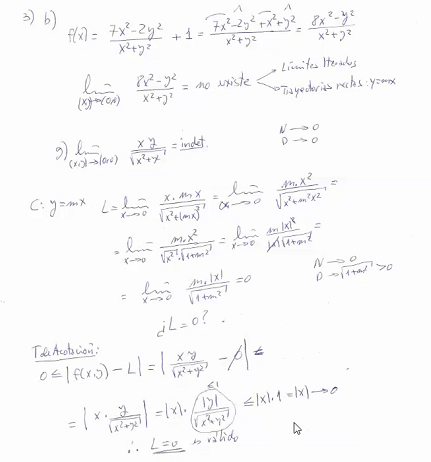 3) b) f(x) = (7x²-2y²)/(x²+y²) + 1 = (7x²-2y²+x²+y²)/(x²+y²) = (8x²-y²)/(x²+y²)
lim (x,y)→(0,0) (8x²-y²)/(x²+y²) = no existe
Límites Iterados
Trayectorias rectas: y=mx
g) lim (x,y)→(0,0) xy/√(x²+y²) = indet.
N → 0
D → 0
C: y=mx L = lim x→0 x.mx/√(x²+(mx)²) = lim x→0 m.x²/√(x²+m²x²) =
= lim x→0 m.x²/(√x² √(1+m²)) = lim x→0 m|x|²/(|x|√(1+m²)) =
= lim x→0 m.|x|/√(1+m²) = 0
N → 0
D → √(1+m²) > 0
¿L=0?
T de Acotación:
0 ≤ |f(x,y) - L| = |x.y/√(x²+y²) - 0| ≤
= |x . y/√(x²+y²)| = |x| . |y|/√(x²+y²) ≤ |x|.1 = |x| → 0
≤1
∴ L=0 es válido